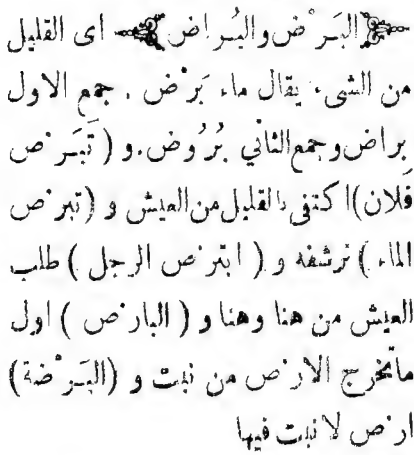 البَرْض والبُراض اى القليل
من الشىء يقال ماء بَرْض . جمع الاول
براض وجمع الثاني بُرُوض . و ( تَبَرَّض
فلان ) اكتفى بالقليل من العيش و ( تبرّض
الماء ) ترشفه و ( ابترض الرجل ) طلب
العيش من هنا وهنا و ( البارض ) اول
ماتخرج الارض من نبت و ( البَرْضة )
ارض لا نبت فيها